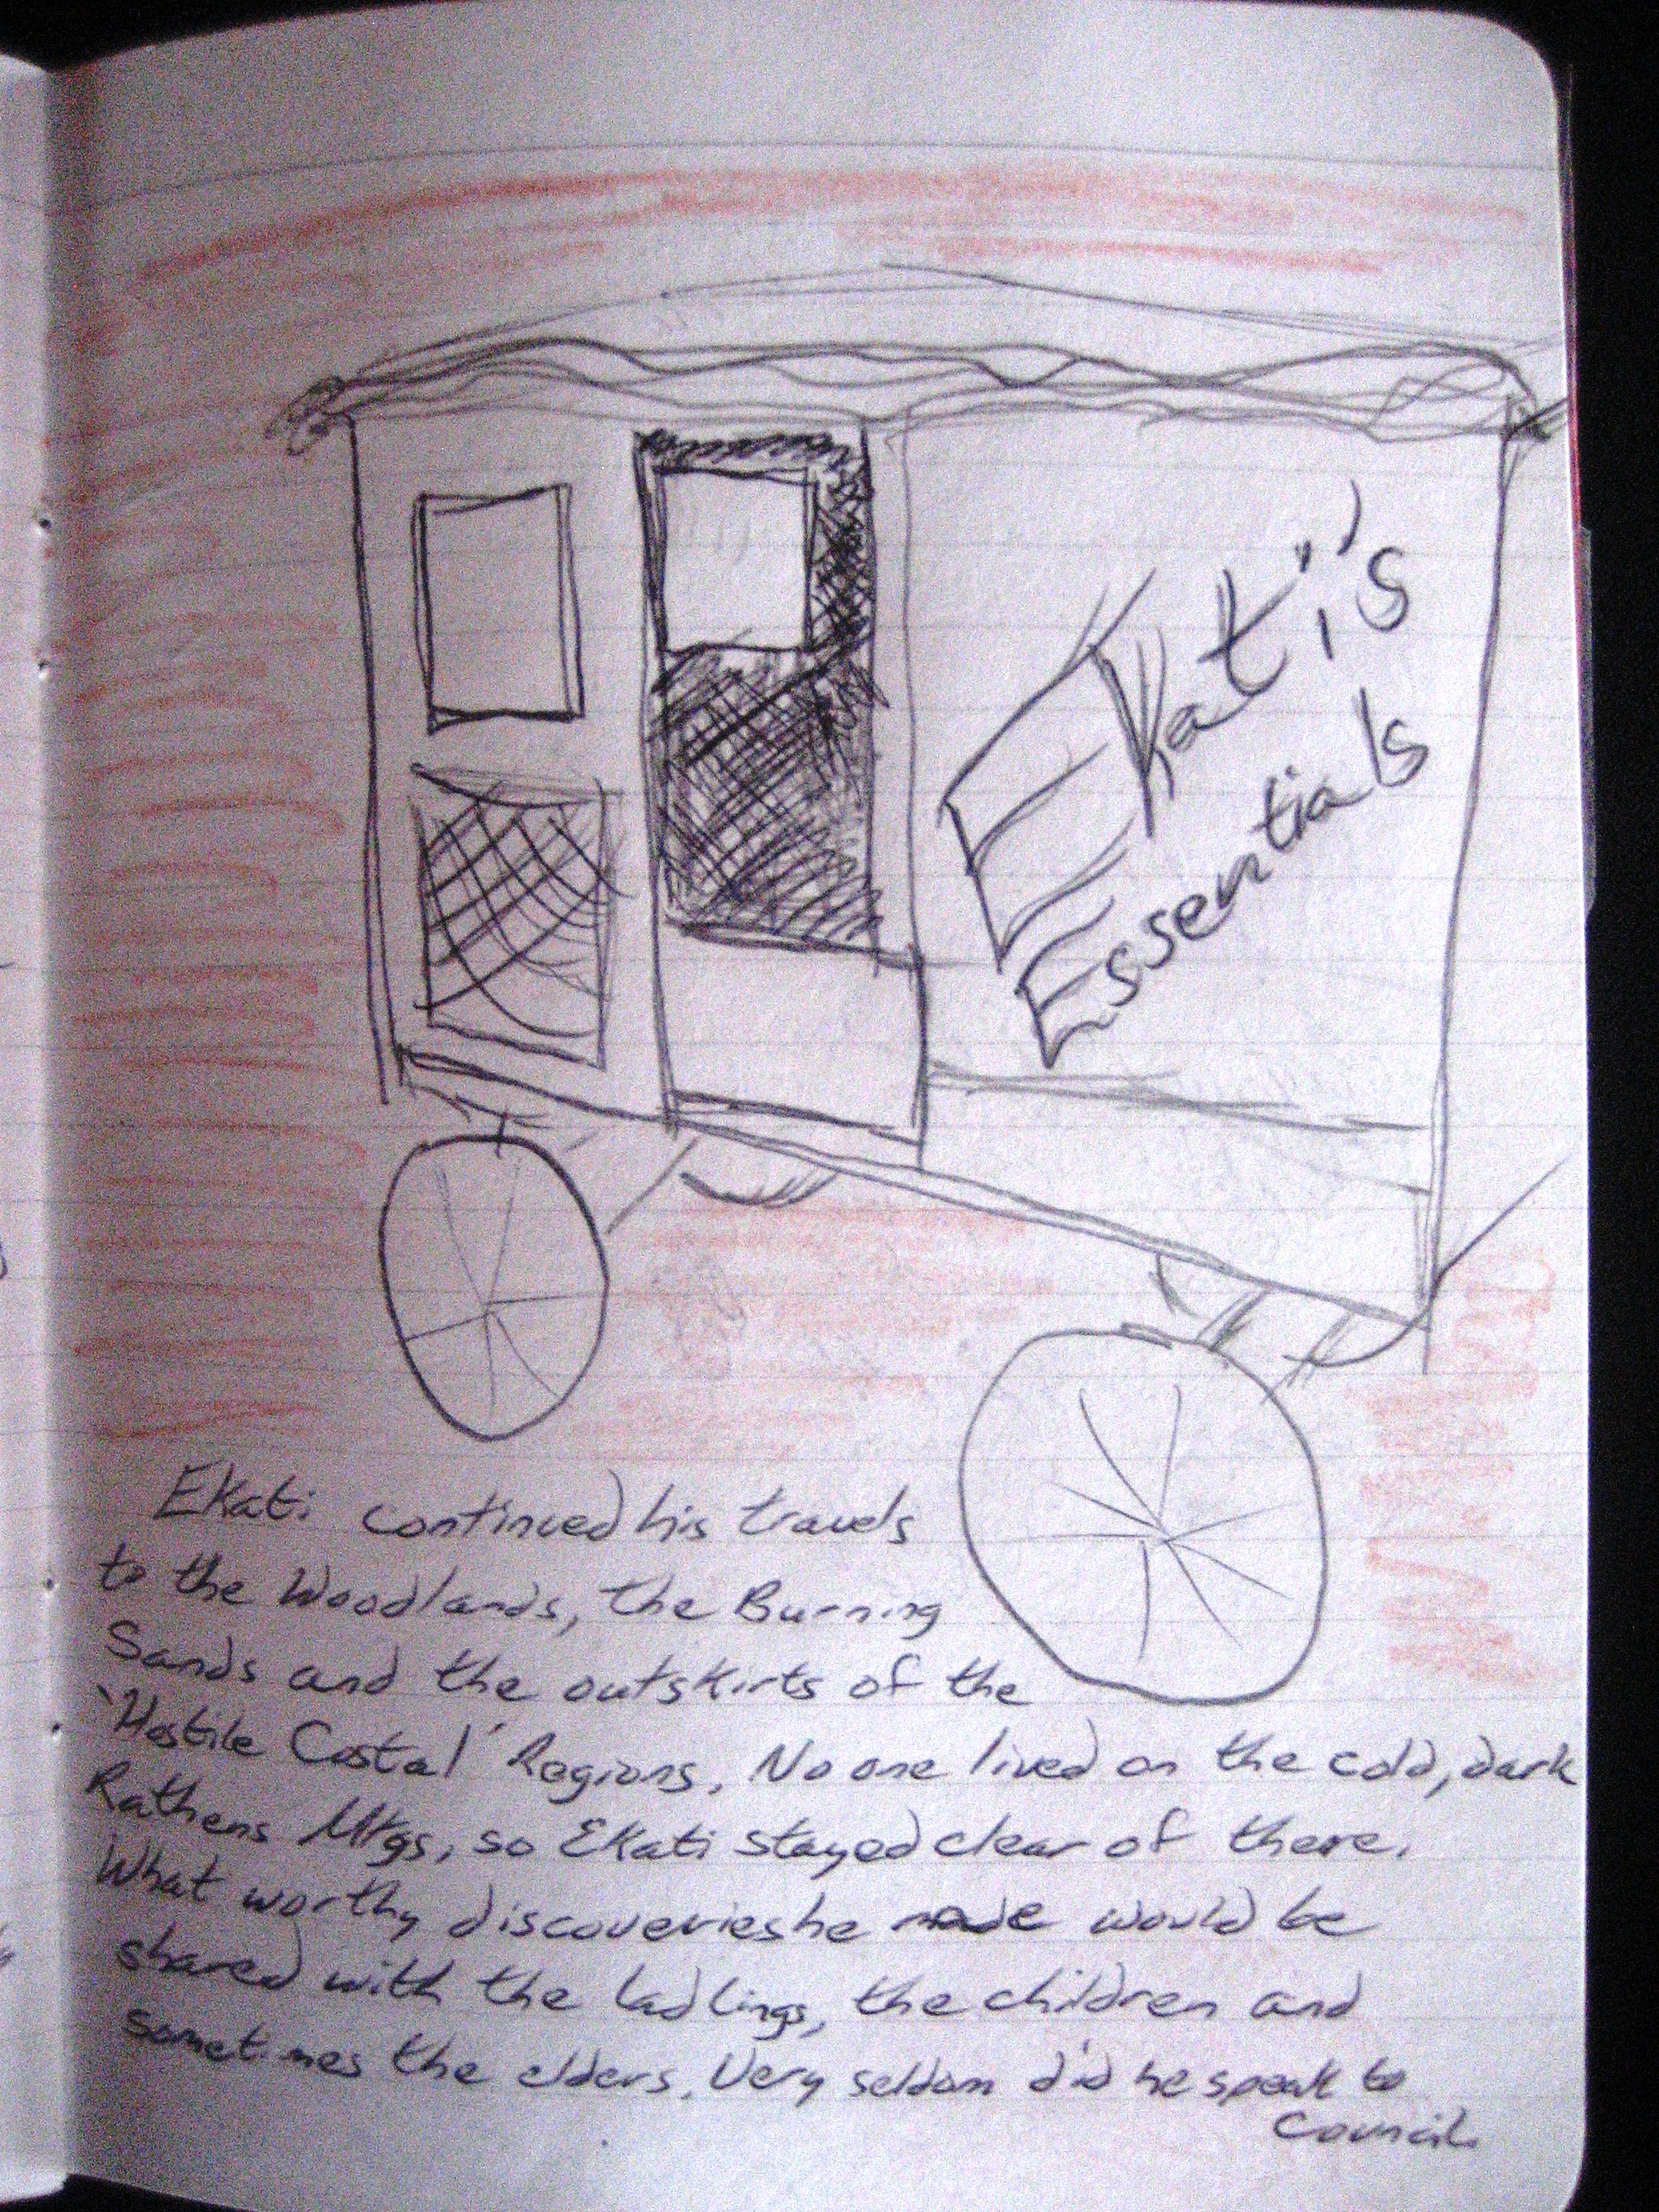 Ekati's
Essentials
Ekati continued his travels
to the Woodlands, the Burning
Sands and the outskirts of the
'Hostile Costal' Regions. No one lived on the cold, dark
Rathens Mtgs, so Ekati stayed clear of there.
What worthy discoveries he made would be
shared with the ladlings, the children and
sometimes the elders. Very seldom did he speak to
Council